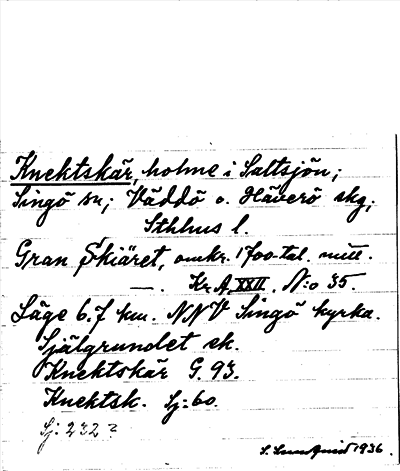 Knektskär, holme i Saltsjön;
Singö sn; Väddö o. Häverö skg;
Sthlms l.
Gran Skiäret, omkr. 1700-tal. mitt.
—. Kr. A. XXII. N:o 35.
Läge 6.7 km. NNV Singö kyrka.
Själgrundet ek.
Knektskär G. 93.
Knektsk. Sj: 60.
Sj: 232?
S. Lundquist 1936.